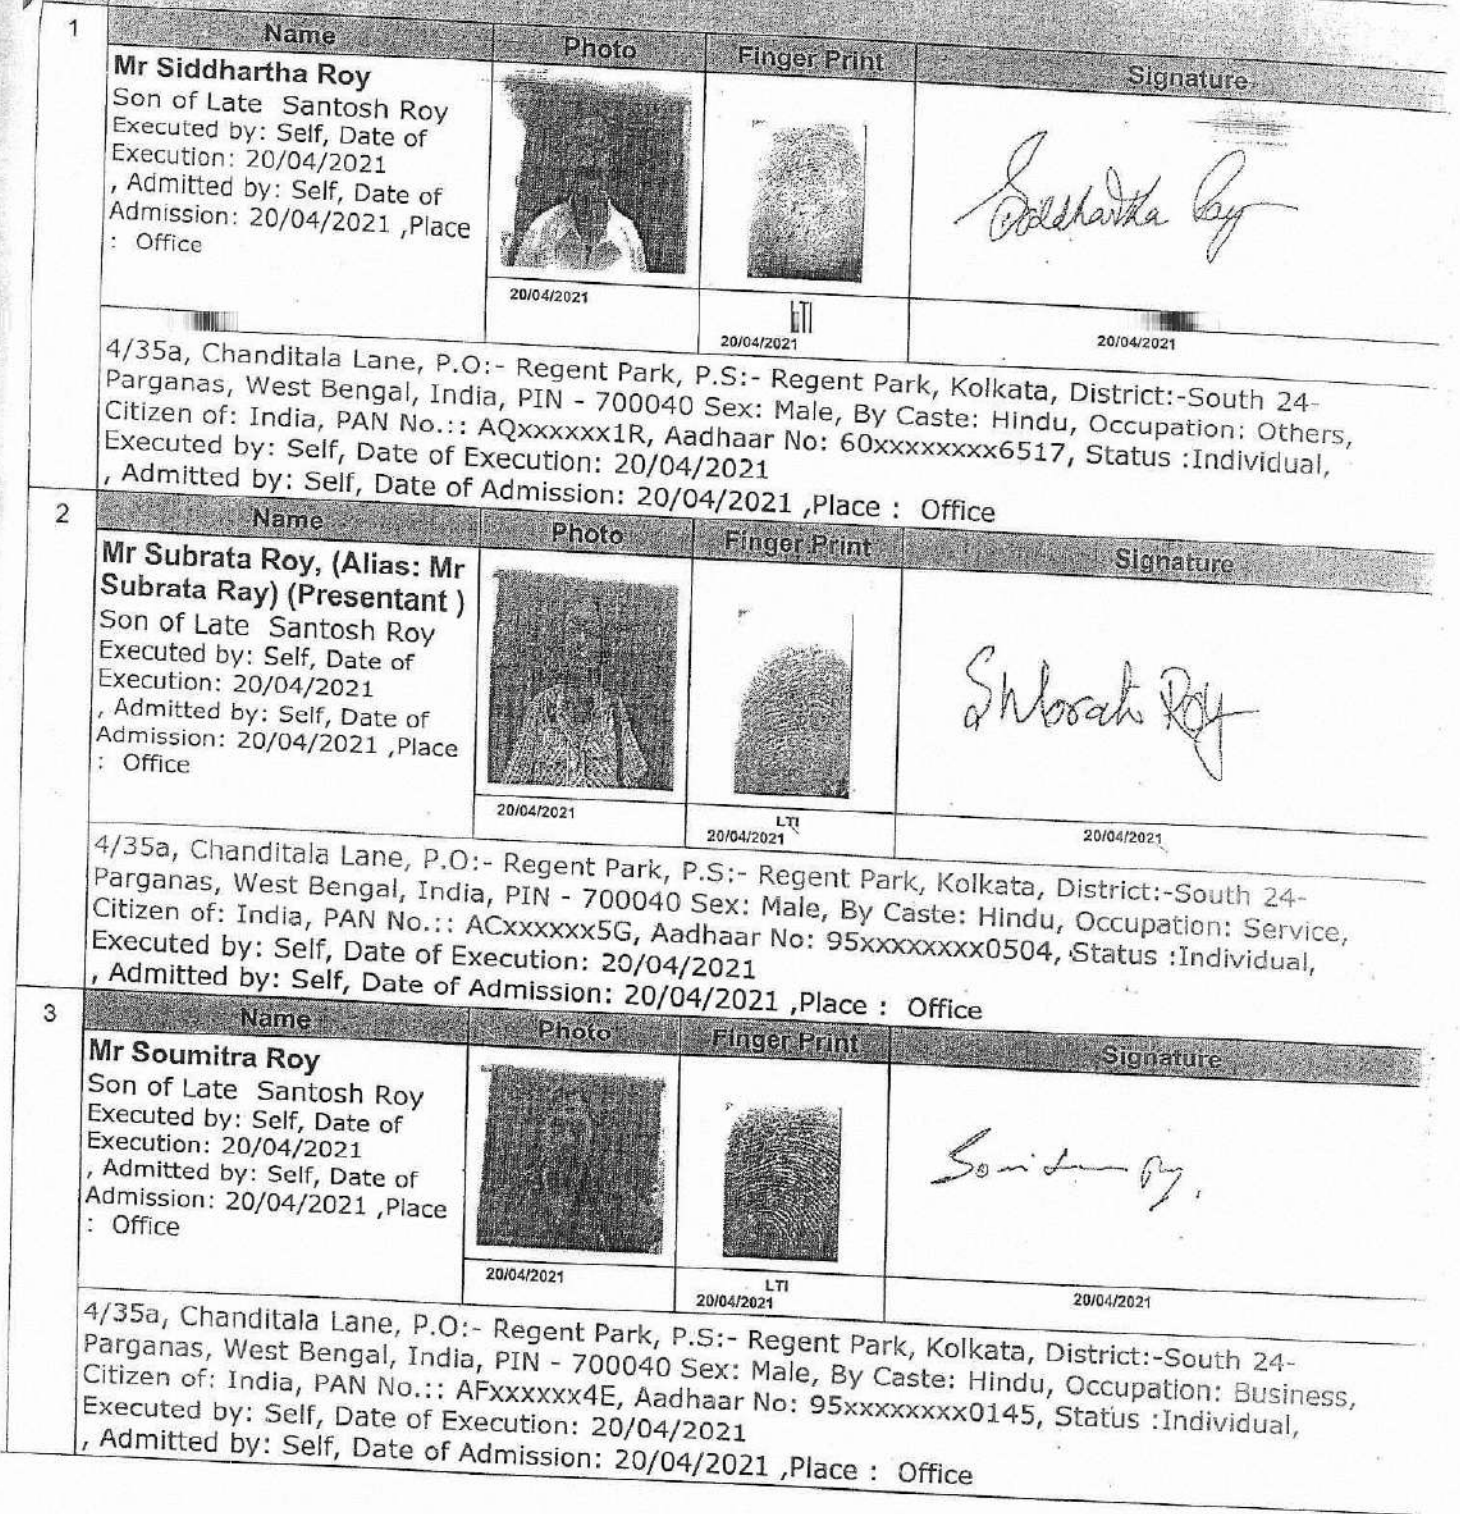 1
Name Photo Finger Print Signature
Mr Siddhartha Roy
Son of Late Santosh Roy
Executed by: Self, Date of
Execution: 20/04/2021
, Admitted by: Self, Date of
Admission: 20/04/2021 ,Place
: Office
Siddhartha Roy
20/04/2021
LTI
20/04/2021
20/04/2021
4/35a, Chanditala Lane, P.O:- Regent Park, P.S:- Regent Park, Kolkata, District:-South 24-
Parganas, West Bengal, India, PIN - 700040 Sex: Male, By Caste: Hindu, Occupation: Others,
Citizen of: India, PAN No.:: AQxxxxxx1R, Aadhaar No: 60xxxxxxxx6517, Status :Individual,
Executed by: Self, Date of Execution: 20/04/2021
, Admitted by: Self, Date of Admission: 20/04/2021 ,Place : Office
2
Name Photo Finger Print Signature
Mr Subrata Roy, (Alias: Mr
Subrata Ray) (Presentant )
Son of Late Santosh Roy
Executed by: Self, Date of
Execution: 20/04/2021
, Admitted by: Self, Date of
Admission: 20/04/2021 ,Place
: Office
Roy
20/04/2021
LTI
20/04/2021
20/04/2021
4/35a, Chanditala Lane, P.O:- Regent Park, P.S:- Regent Park, Kolkata, District:-South 24-
Parganas, West Bengal, India, PIN - 700040 Sex: Male, By Caste: Hindu, Occupation: Service,
Citizen of: India, PAN No.:: ACxxxxxx5G, Aadhaar No: 95xxxxxxxx0504, Status :Individual,
Executed by: Self, Date of Execution: 20/04/2021
, Admitted by: Self, Date of Admission: 20/04/2021 ,Place : Office
3
Name Photo Finger Print Signature
Mr Soumitra Roy
Son of Late Santosh Roy
Executed by: Self, Date of
Execution: 20/04/2021
, Admitted by: Self, Date of
Admission: 20/04/2021 ,Place
: Office
20/04/2021
LTI
20/04/2021
20/04/2021
4/35a, Chanditala Lane, P.O:- Regent Park, P.S:- Regent Park, Kolkata, District:-South 24-
Parganas, West Bengal, India, PIN - 700040 Sex: Male, By Caste: Hindu, Occupation: Business,
Citizen of: India, PAN No.:: AFxxxxxx4E, Aadhaar No: 95xxxxxxxx0145, Status :Individual,
Executed by: Self, Date of Execution: 20/04/2021
, Admitted by: Self, Date of Admission: 20/04/2021 ,Place : Office